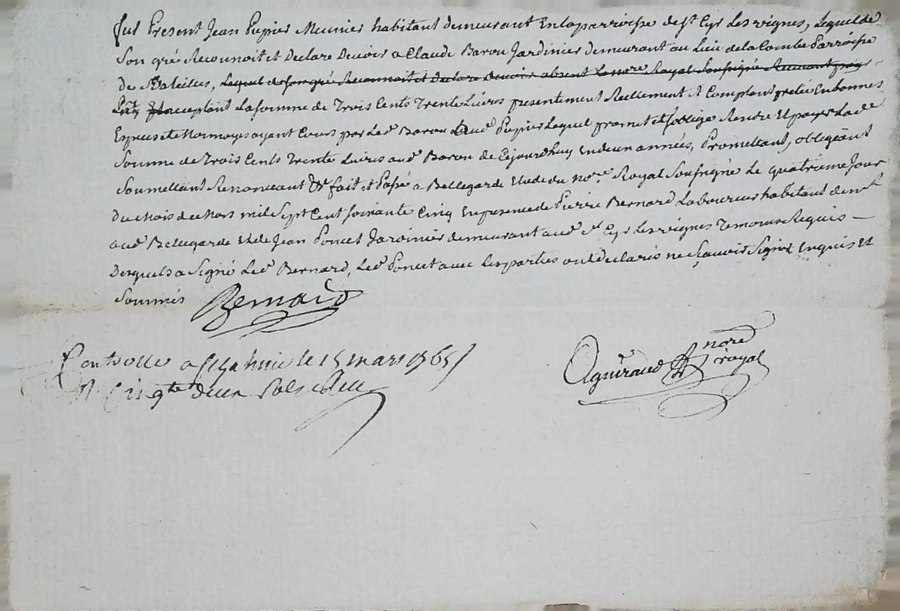 fut Present Jean Pupier Meunier habitant demeurant En la parroisse de st Cyr Les vignes, Lequel de
Son gré Reconnoit et Declare Devoir a Claude Barou Jardinier demeurant au Lieu de la Combe Parroisse
De Lequel de son gré Reconnoit et declare devoir absent Le nore Royal Soussigné
acceptant La somme de Trois Cents Trente Livres presentement Reellement & Comptant pretée En bonnes
Especes et Monnoye ayant Cours par Led. Barou aud. Pupier Lequel promet et s'oblige Rendre Et payer Lade
Somme de Trois Cents Trente Livres aud. Barou de Cejourdhuy En deux années, Promettant, obligeant
Soumettant Renonceant &r fait et Passé a Bellegarde Etude du Nore Royal Soussigné Le quatrieme Jour
Du Mois de Mars mil Sept Cent soixante Cinq En presence de Pierre Bernard Laboureur habitant
aud. Bellegarde Et de Jean Poncet Jardinier demeurant aud. St Cyr Les vignes Temoins Requis —
Desquels a Signé Led. Bernard, Led. Poncet avec Les parties ont declarés ne Sçavoir Signer Enquis Et
Sommés
Bernard
Controllé a le 15 mars 1765
R. deux Sols
nore
royal